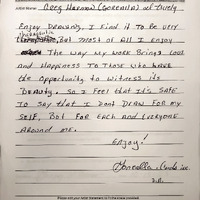 Artist Name: Greg Harmon (Gorcella) at Luvely
Enjoy Drawing, I find it to be very
therapeutic, But most of all I enjoy
The way my work Brings Love
and Happiness to those who have
the opportunity to witness its
Beauty. So I feel that it's safe
to say that I don't draw for my
self, But for each and everyone
Around me.
Enjoy!